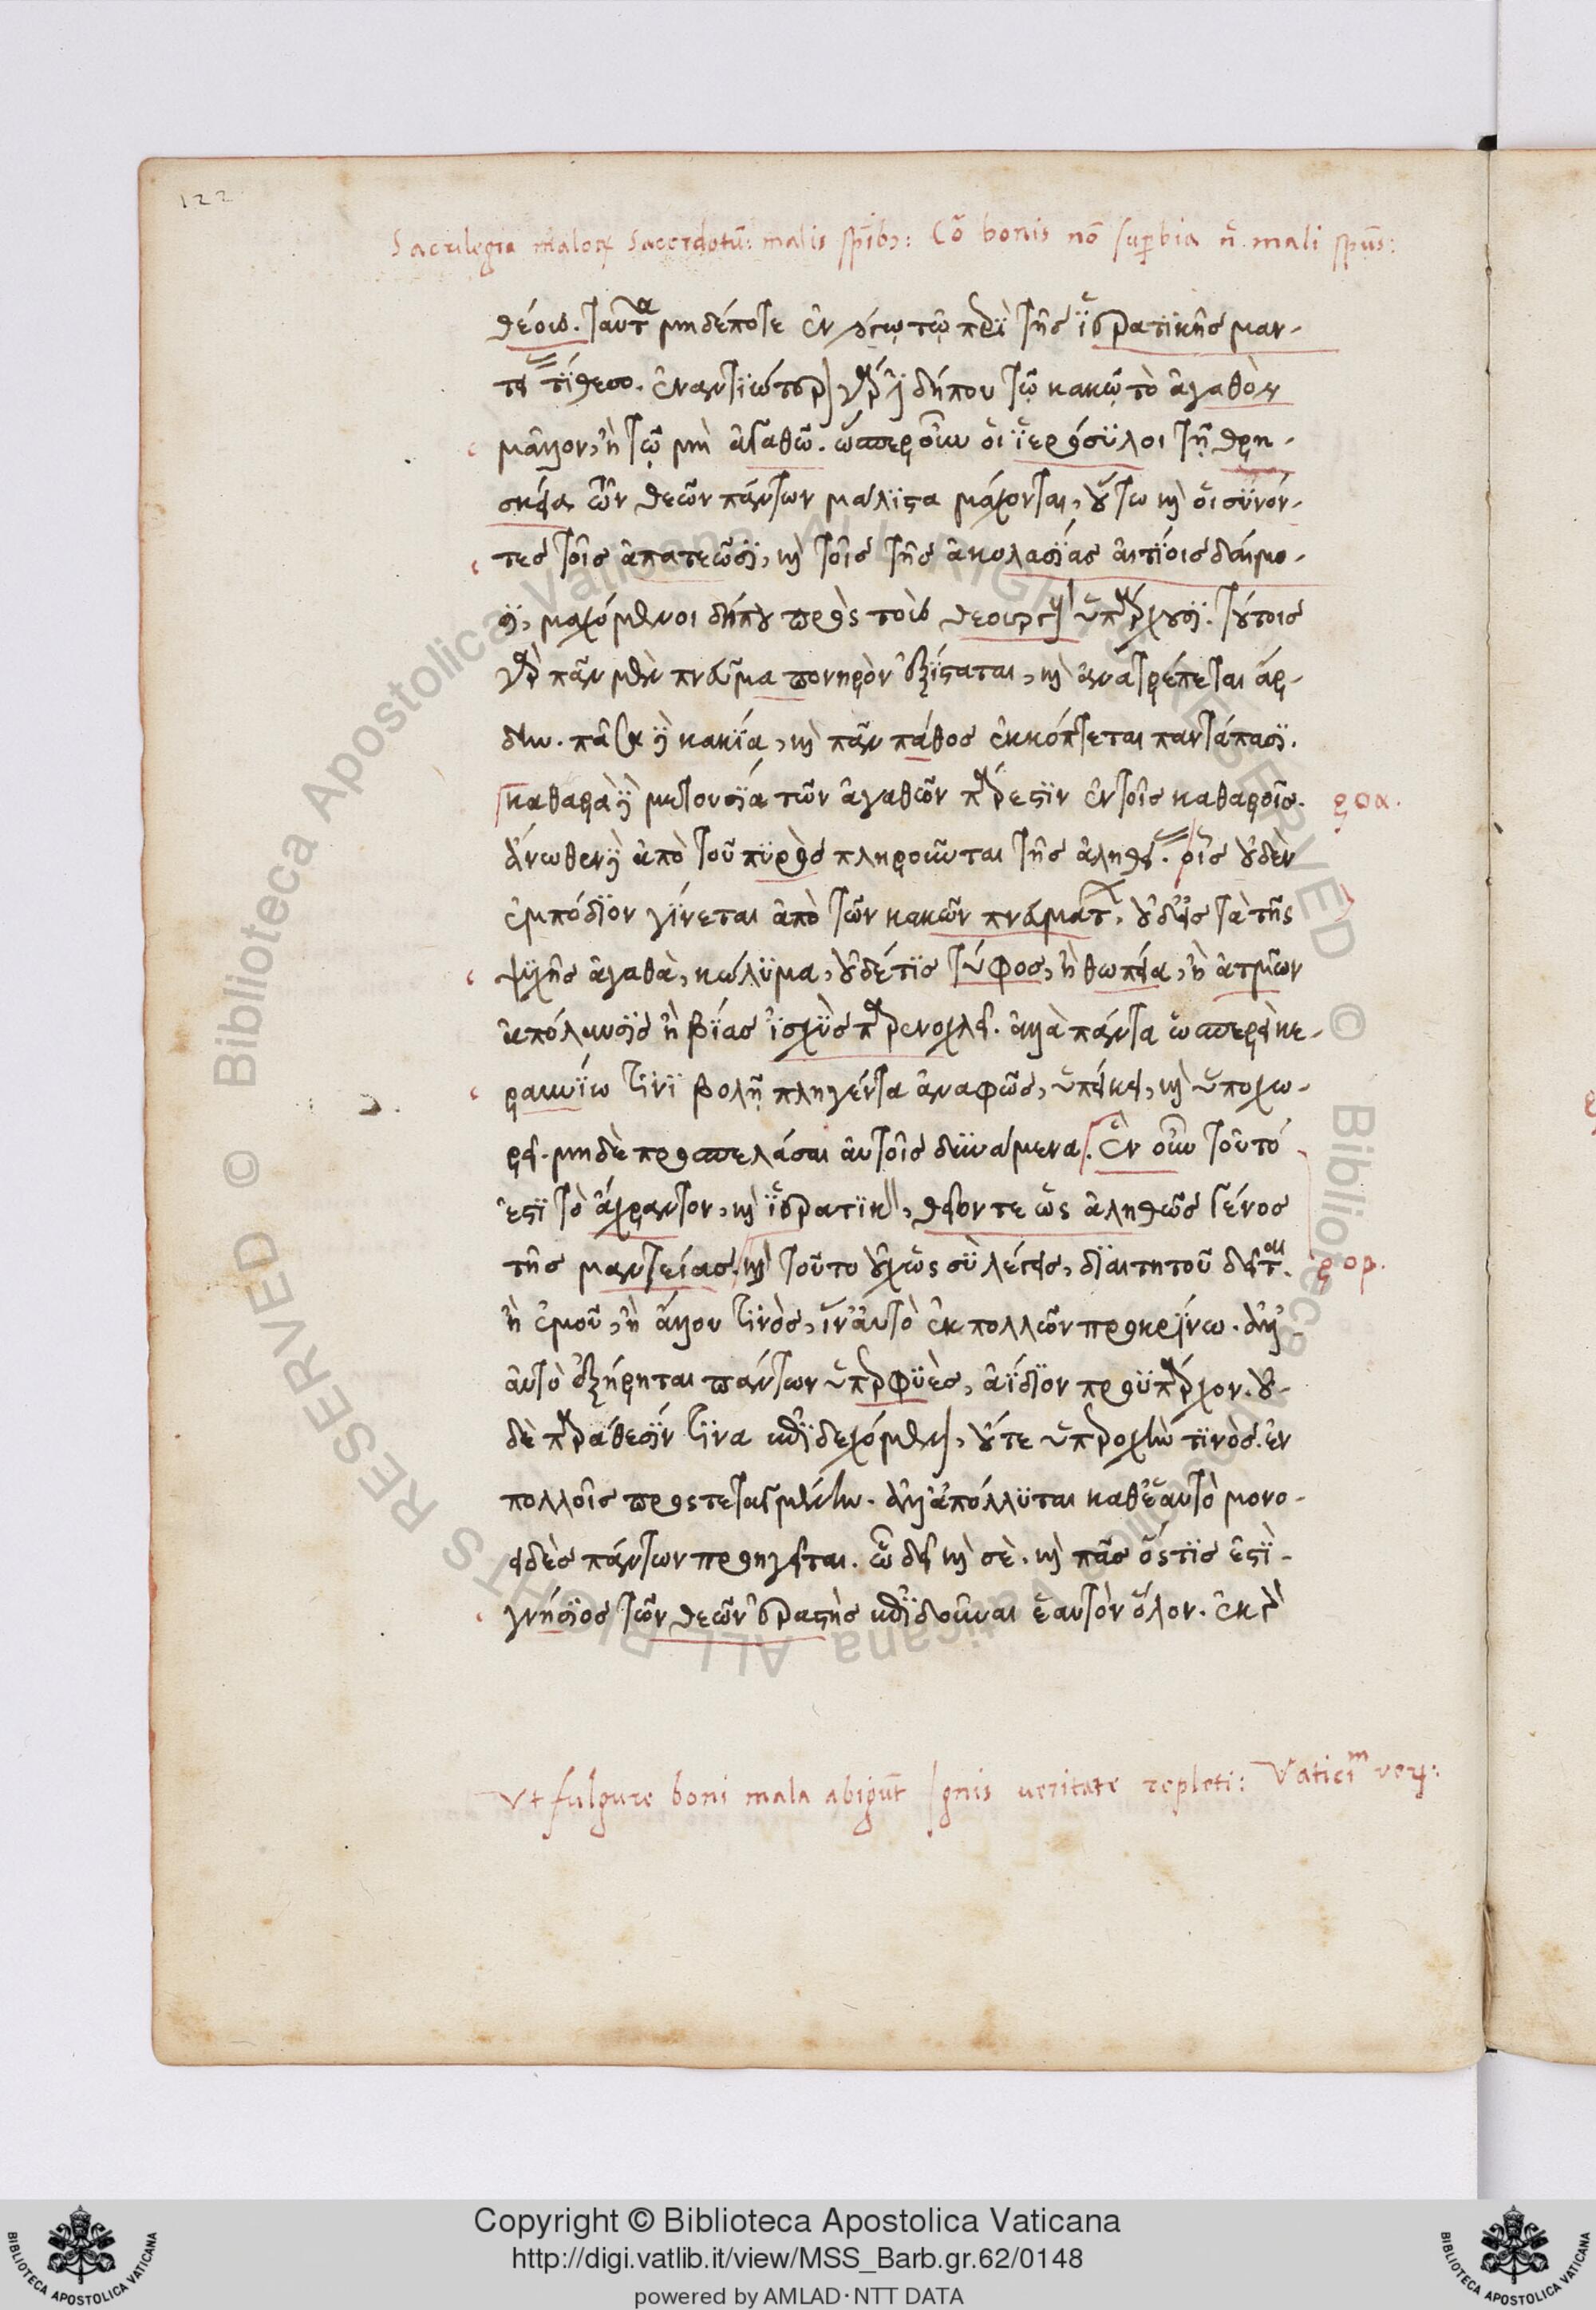 122
Sacrilegia malorum Sacerdotum: malis spiritibus: Cō bonis nō superbia n̄ mali spūs:
θέοιν. ταῦτα μηδέποτε ἐν ἔργῳ τῷ περὶ τῆς ἱερατικῆς μαν-
τείας τίθεσο. ἐναντιώτερον γάρ ἐστι δήπου τῷ κακῷ τὸ ἀγαθὸν
μᾶλλον, ἢ τῷ μὴ ἀγαθῷ. ὥσπερ οὖν οἱ ἱερόσυλοι τῇ θρη-
σκεία τῶν θεῶν πάντων μάλιστα μάχονται, οὕτω καὶ οἱ συνόν-
τες τοῖς ἀπατεῶσι, καὶ τοῖς τῆς ἀκολασίας αἰτίοις δαίμο-
σι, μαχόμενοι δήπου πρὸς τοὺς θεουργοὺς ὑπάρχουσι. τούτοις
γὰρ πᾶν μὲν πνεῦμα πονηρὸν ἐξίσταται, καὶ ἀνατρέπεται ἄρ-
δην. πᾶσα δὲ κακία, καὶ πᾶν πάθος ἐκκόπτεται παντάπασι.
καθαρὰ δὲ μετουσία τῶν ἀγαθῶν πάρεστιν ἐν τοῖς καθαροῖς. ροα.
ἄνωθεν δὲ ἀπὸ τοῦ πυρὸς πληροῦνται τῆς ἀληθείας. οἷς οὐδὲν
ἐμπόδιον γίνεται ἀπὸ τῶν κακῶν πνευμάτων, οὐδ' εἰς τὰ τῆς
ψυχῆς ἀγαθὰ, κώλυμα, οὐδέ τις τύφος, ἢ θωπεία, ἢ ἀτμῶν
ἀπόλαυσις ἢ βίας ἰσχὺς παρενοχλεῖ. ἀλλὰ πάντα ὥσπερ εἰ κε-
ραυνίῳ τινὶ βολῇ πληγέντα ἀναφῶς, ὑπείκει, καὶ ὑποχω-
ρεῖ. μηδὲ προσπελάσαι αὐτοῖς δυνάμενα. Ἓν οὖν τοῦτό
ἐστι τὸ ἄχραντον, καὶ ἱερατικὸν, θεῖόν τε ὡς ἀληθῶς γένος
τῆς μαντείας. καὶ τοῦτο οὐχ ὡς σὺ λέγεις, διαιτητοῦ δεῖται. ροβ.
ἢ ἐμοῦ, ἢ ἄλλου τινὸς, ἵν' αὐτὸ ἐκ πολλῶν προκρίνω. ἀλλ'
αὐτὸ ἐξήρηται πάντων ὑπερφυὲς, ἀίδιον προϋπάρχον. οὐ-
δὲ παράθεσίν τινα ἐπιδεχόμενον, οὔτε ὑπεροχήν τινὸς. ἐν
πολλοῖς προστεταγμένην. ἀλλ' ἀπόλλυται καθ' ἑαυτὸ μονο-
ειδὲς πάντων προηγεῖται. ᾧ δεῖ καὶ σὲ. καὶ πᾶς ὅστις ἐστὶ
γνήσιος τῶν θεῶν ἐραστὴς ἐπιδοῦναι ἑαυτὸν ὅλον. ἐκ γὰρ
Ut fulgure boni mala abigunt Ignis veritate repleti: Vaticinium verum:
Copyright © Biblioteca Apostolica Vaticana
http://digi.vatlib.it/view/MSS_Barb.gr.62/0148
powered by AMLAD·NTT DATA